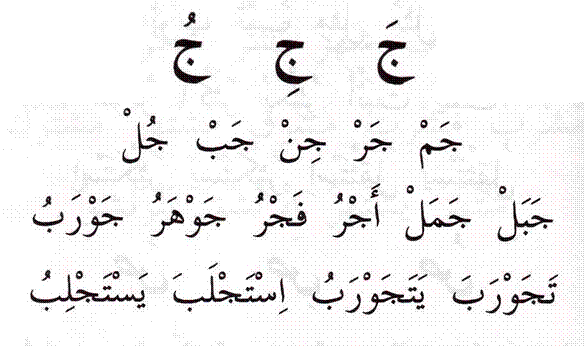 جَ جِ جُ
جَمْ جَرْ جِنْ جَبْ جُلْ
جَبَلْ جَمَلْ أَجْرُ فَجْرُ جَوْهَرُ جَوْرَبُ
تَجَوْرَبَ يَتَجَوْرَبُ اِسْتَجْلَبَ يَسْتَجْلِبُ